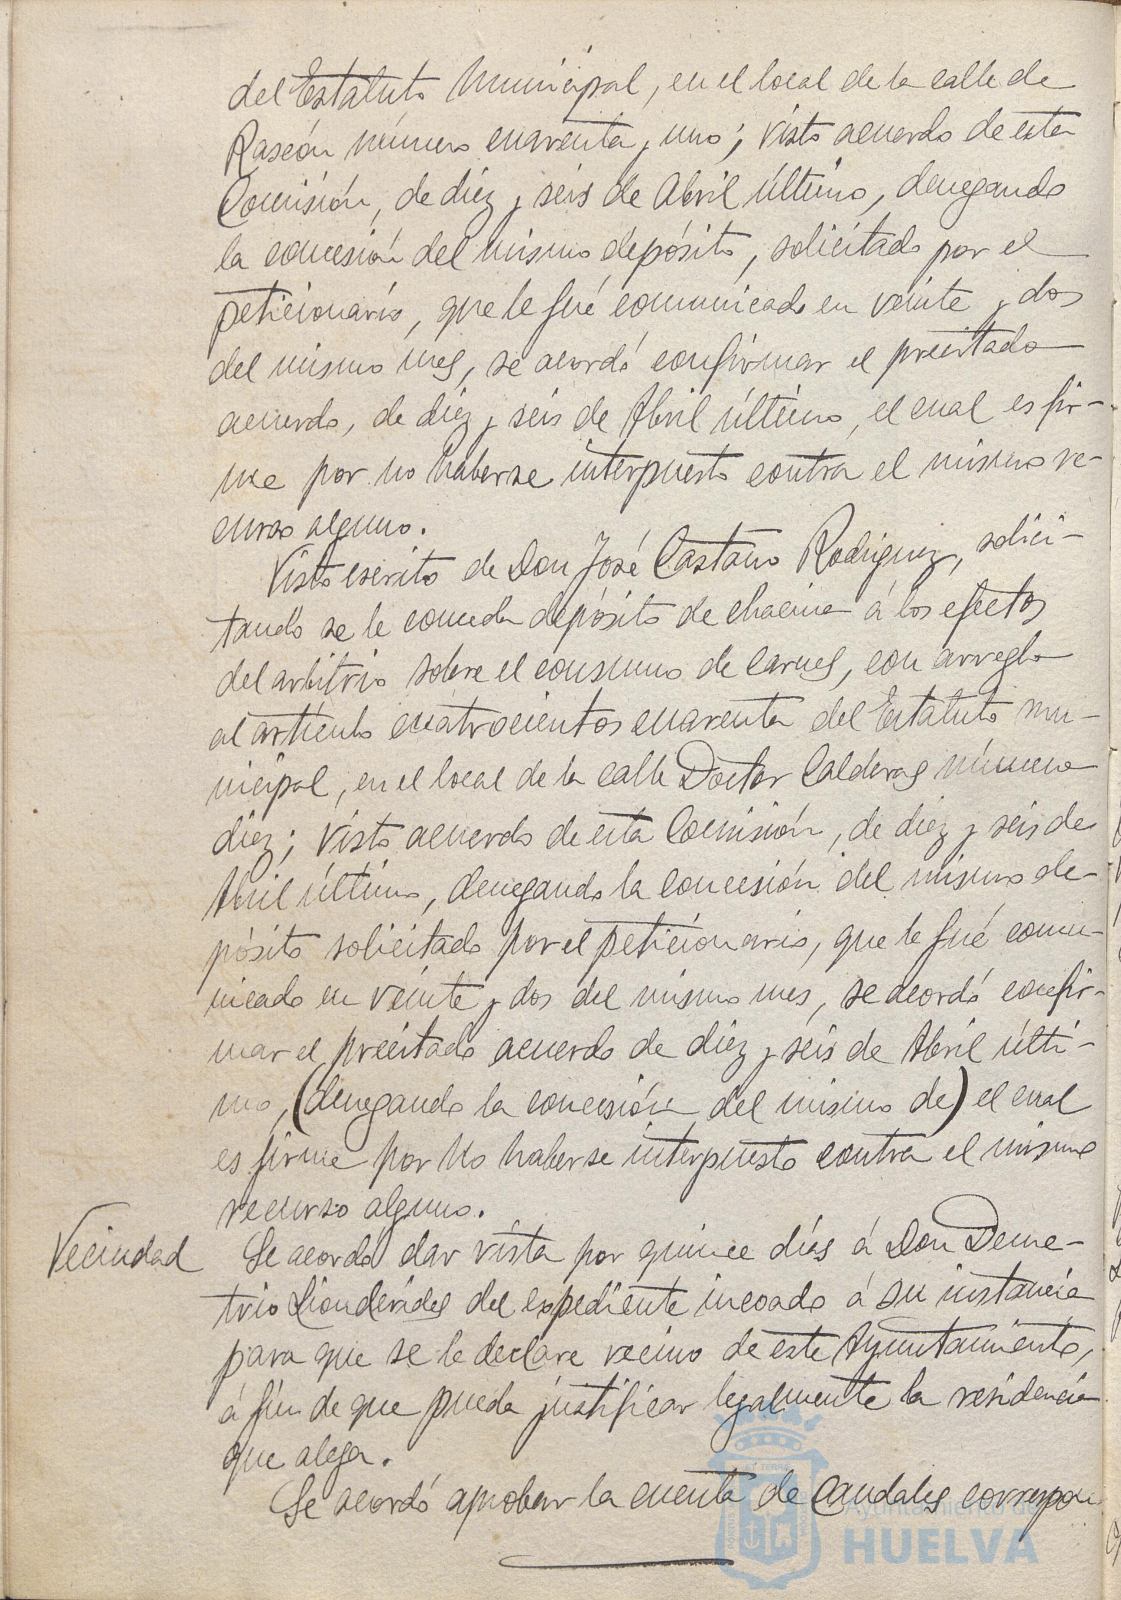 del Estatuto Municipal, en el local de la calle de
Rascón número cuarenta y uno; visto acuerdo de esta
Comisión, de diez y seis de Abril último, denegando
la concesión del mismo depósito, solicitado por el
peticionario, que le fué comunicado en veinte y dos
del mismo mes, se acordó confirmar el precitado
acuerdo, de diez y seis de Abril último, el cual es fir-
me por no haberse interpuesto contra el mismo re-
curso alguno.
Visto escrito de Don José Castaño Rodriguez, solici-
tando se le conceda depósito de chacina á los efectos
del arbitrio sobre el consumo de Carnes, con arreglo
al artículo cuatrocientos cuarenta del Estatuto mu-
nicipal, en el local de la calle Doctor Calderas número
diez; visto acuerdo de esta Comisión, de diez y seis de
Abril último, denegando la concesión del mismo de-
pósito solicitado por el peticionario, que le fué comu-
nicado en veinte y dos del mismo mes, se acordó confir-
mar el precitado acuerdo de diez y seis de Abril últi-
mo, (denegando la concesión del mismo de) el cual
es firme por no haberse interpuesto contra el mismo
recurso alguno.
Vecindad
Se acordó dar vista por quince días á Don Deme-
trio del expediente incoado á su instancia
para que se le declare vecino de este Ayuntamiento,
á fin de que pueda justificar legalmente la residencia
que alega.
Se acordó aprobar la cuenta de Caudales correspon
Ayuntamiento de
HUELVA